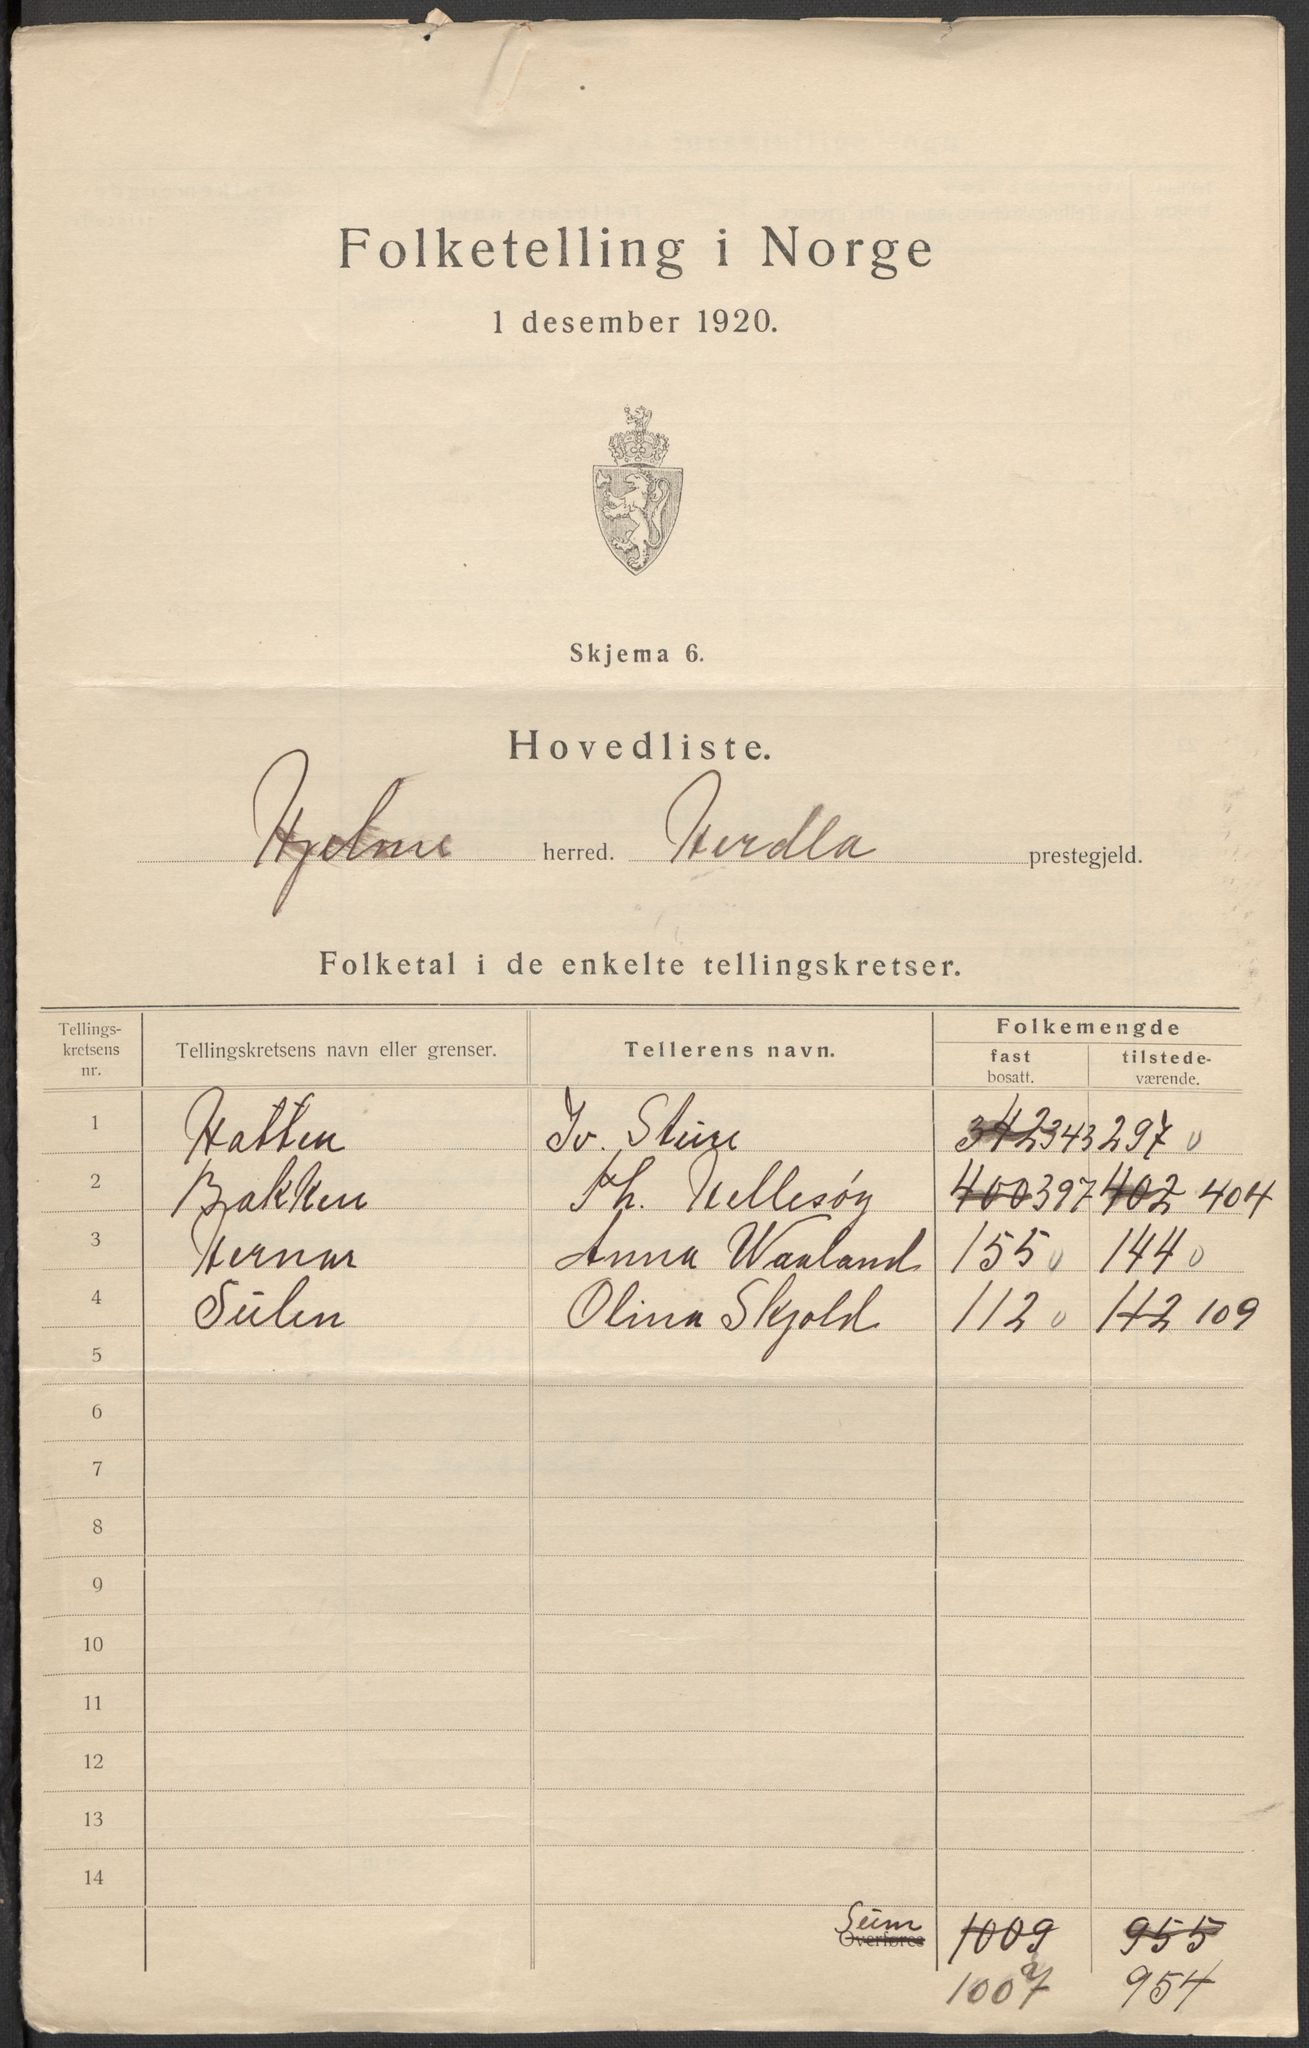 Folketelling i Norge
1 desember 1920.
Skjema 6.
Hovedliste.
Hjelme herred. Herdla prestegjeld.
Folketal i de enkelte tellingskretser.
Tellings-kretsens nr. Tellingskretsens navn eller grenser. Tellerens navn. Folkemengde fast bosatt. tilstede-værende.
1 Hatten Iv. Stüre 342 343 297 0
2 Bakken Th. Hellesøy 400 397 402 404
3 Hernar Anna Waaland 155 0 144 0
4 Sülen Olina Skjold 112 0 112 109
5
6
7
8
9
10
11
12
13
14
Overføres Süm 1009 955
1007 954